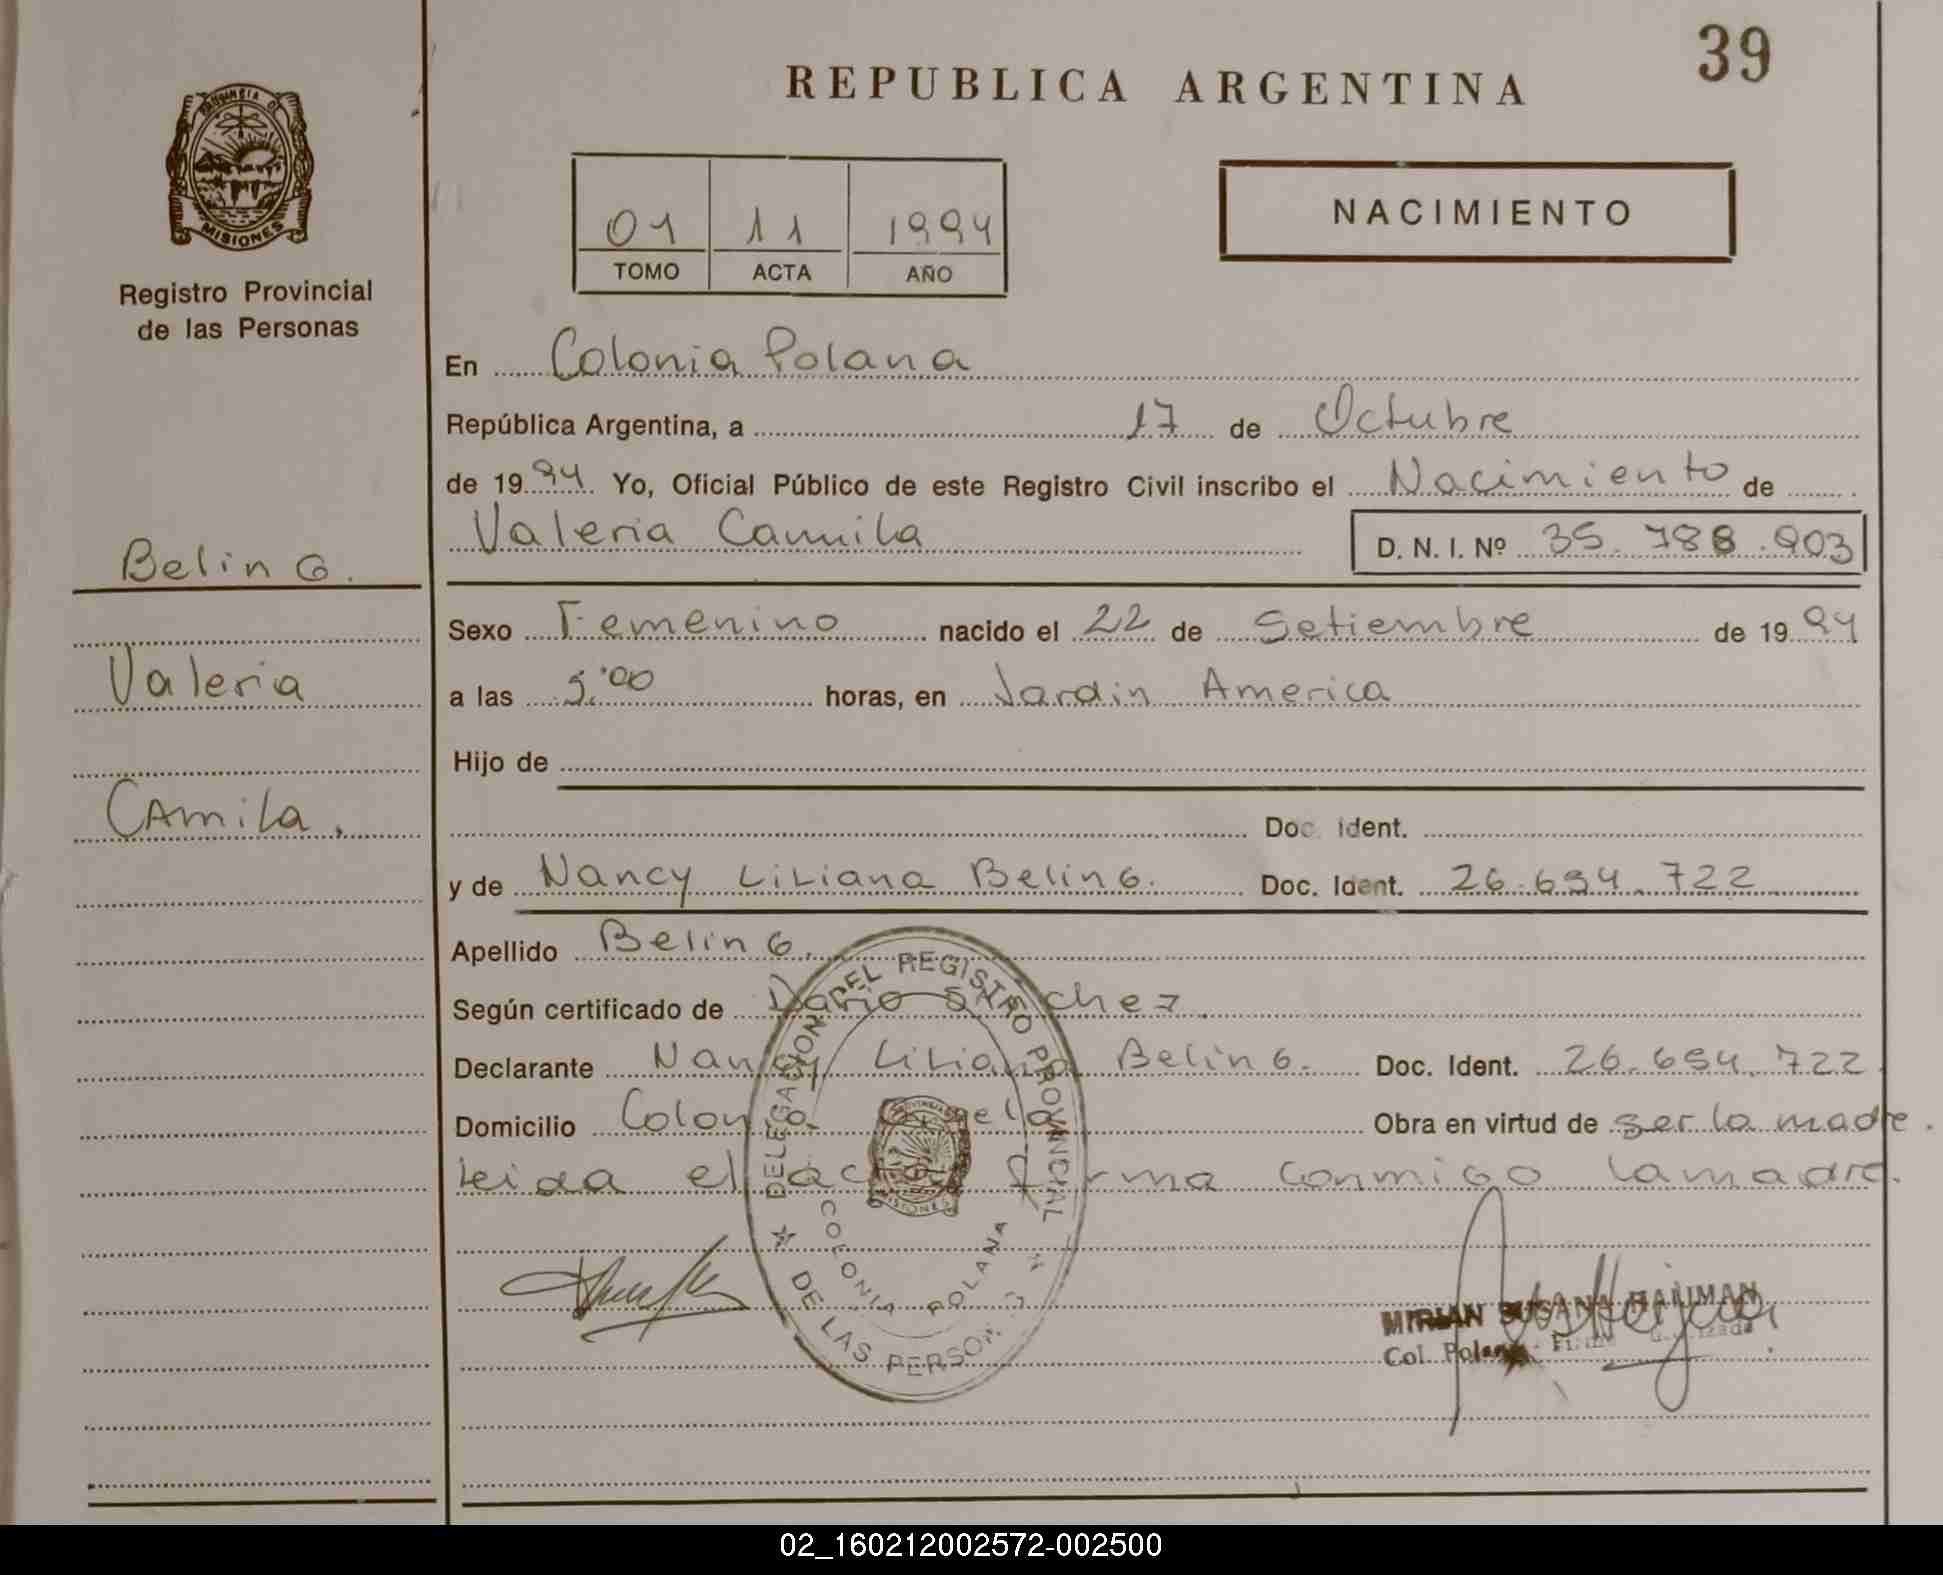 39
REPUBLICA ARGENTINA
PROVINCIA D
MISIONES
Registro Provincial
de las Personas
01 11 1994
TOMO ACTA AÑO
NACIMIENTO
En Colonia Polana
República Argentina, a 17 de Octubre
de 1994 Yo, Oficial Público de este Registro Civil inscribo el Nacimiento de
Valeria Camila D. N. I. Nº 35.788.903
Beling.
Valeria
Camila.
Sexo Femenino nacido el 22 de Setiembre de 1994
a las 5:00 horas, en Jardin America
Hijo de
Doc. Ident.
y de Nancy Liliana Beling. Doc. Ident. 26.694.722
Apellido Beling.
Según certificado de Dario Sanchez.
Declarante Nancy Liliana Beling. Doc. Ident. 26.694.722
Domicilio Colonia Obra en virtud de ser la madre.
Leida el acta firma conmigo la madre.
DELEGACION DEL REGISTRO PROVINCIAL
DE LAS PERSONAS
COLONIA POLANA
MIRIAN SUSANA
Col. Polana
02_160212002572-002500